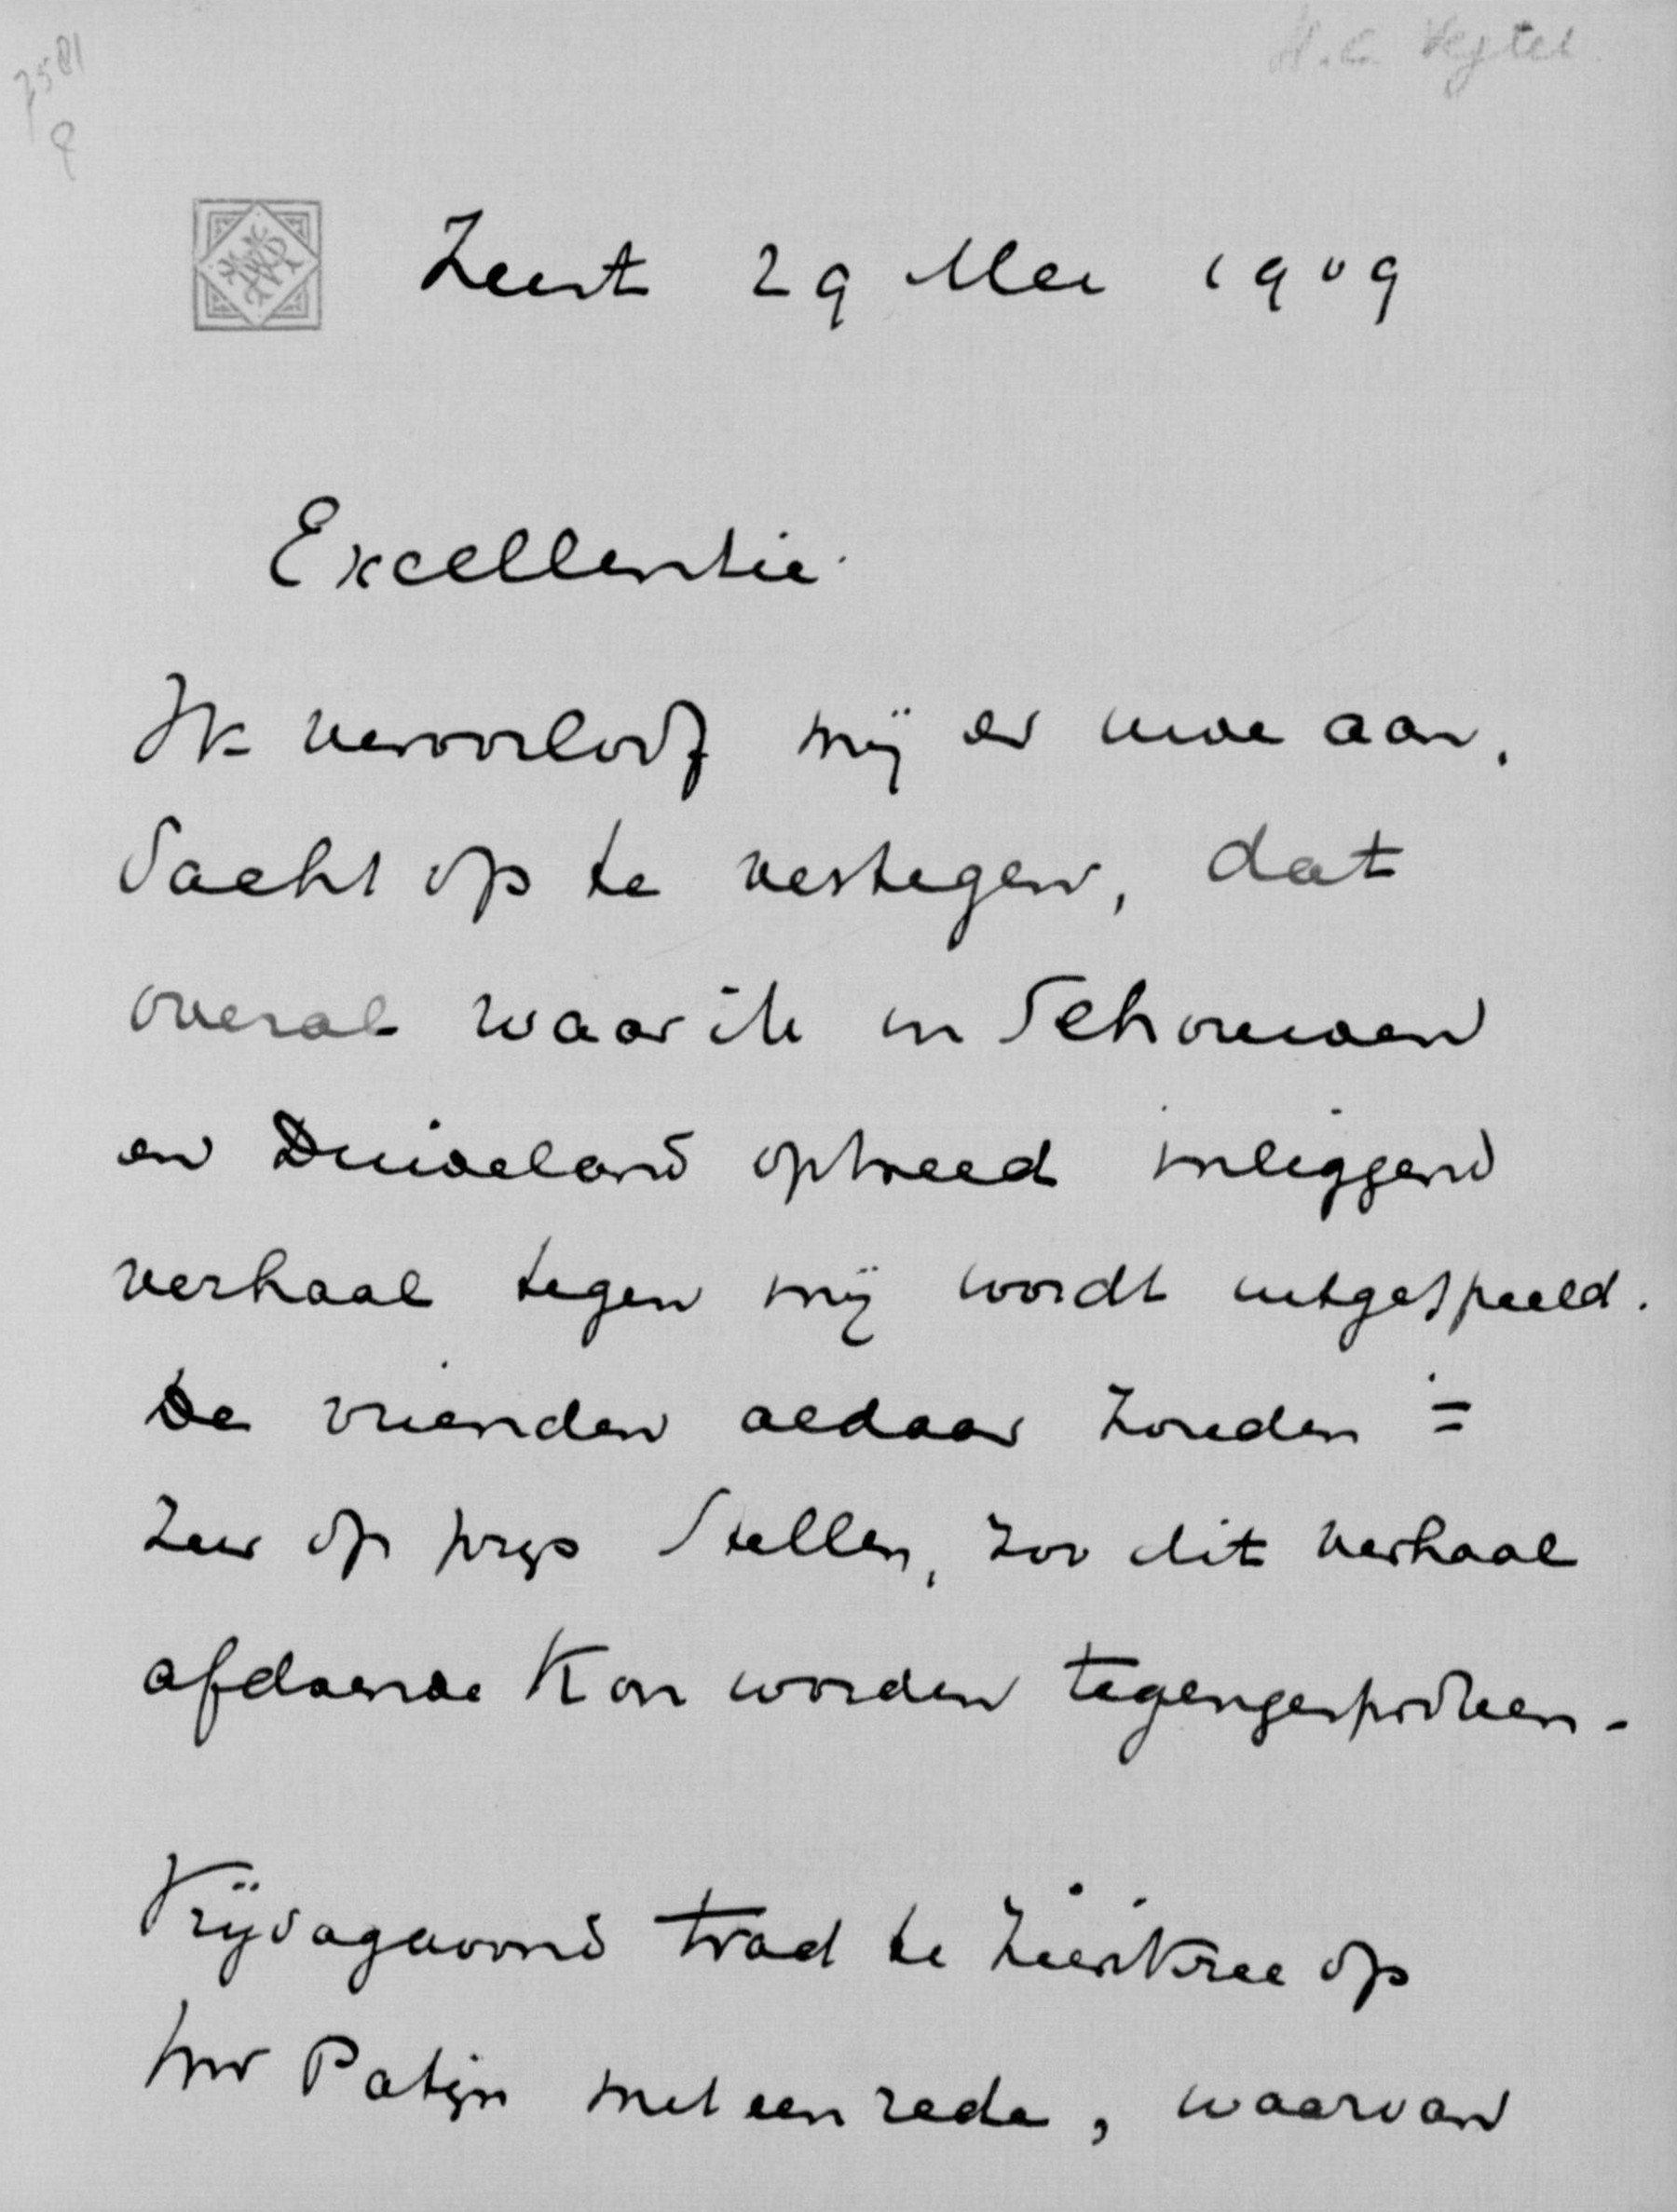 7581
H.C. Vegtel
Zeist 29 Mei 1909
Excellentie.
Ik veroorloof mij er uwe aan.
dacht op te vestigen, dat
overal waar ik in Schouwen
en Duiveland optreed inliggend
verhaal tegen mij wordt uitgespeeld.
De vrienden aldaar zouden =
zeer op prijs stellen, zoo dit verhaal
afdoende kon worden tegengesproken.
Vrijdagavond trad te Zierikzee op
Mr Patijn met een rede, waarvan